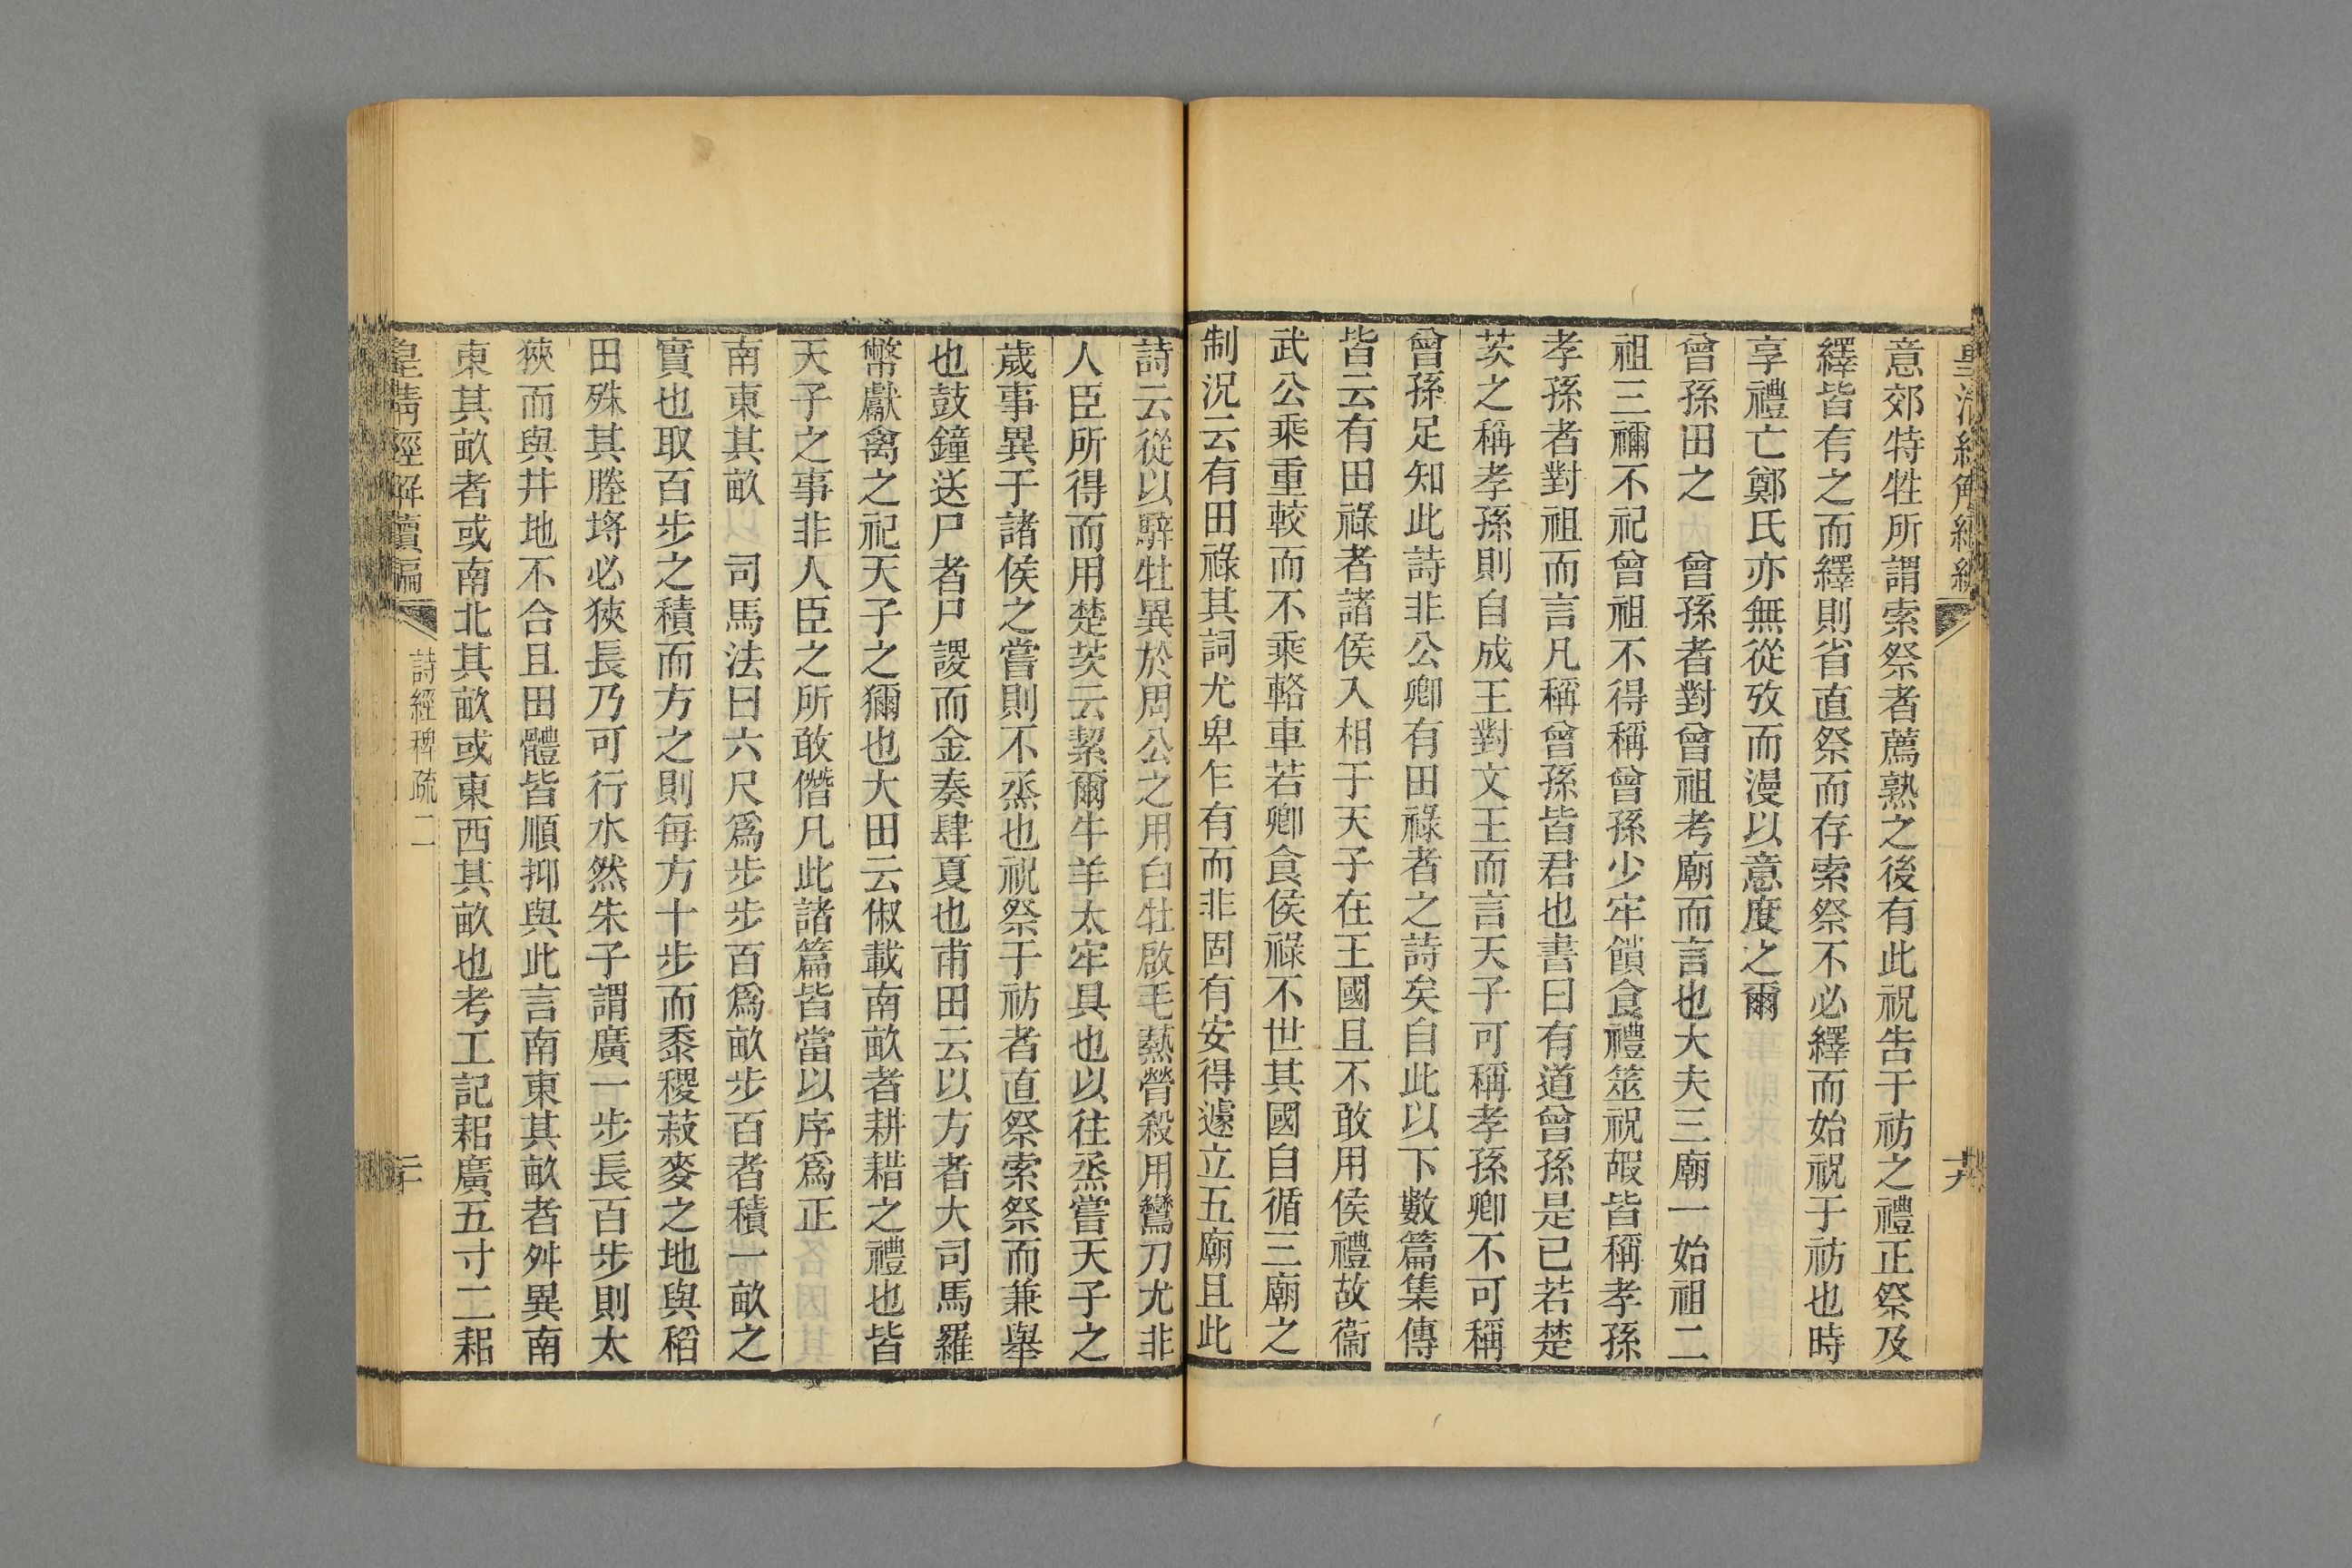 皇清經解續編
十九
意郊特牲所謂索祭者薦熟之後有此祝告于祊之禮正祭及
繹皆有之而繹則省直祭而存索祭不必繹而始祝于祊也時
享禮亡鄭氏亦無從攷而漫以意度之爾
曾孫田之　曾孫者對曾祖考廟而言也大夫三廟一始祖二
祖三禰不祀曾祖不得稱曾孫少牢饋食禮筮祝嘏皆稱孝孫
孝孫者對祖而言凡稱曾孫皆君也書曰有道曾孫是已若楚
茨之稱孝孫則自成王對文王而言天子可稱孝孫卿不可稱
曾孫足知此詩非公卿有田祿者之詩矣自此以下數篇集傳
皆云有田祿者諸侯入相于天子在王國且不敢用侯禮故衞
武公乘重較而不乘輅車若卿食侯祿不世其國自循三廟之
制況云有田祿其詞尤卑乍有而非固有安得遽立五廟且此
詩云從以騂牡異於周公之用白牡啟毛爇膋殺用鸞刀尤非
人臣所得而用楚茨云絜爾牛羊太牢具也以往烝嘗天子之
歲事異于諸侯之嘗則不烝也祝祭于祊者直祭索祭而兼舉
也鼓鐘送尸者尸謖而金奏肆夏也甫田云以方者大司馬羅
幣獻禽之祀天子之獮也大田云俶載南畝者耕耤之禮也皆
天子之事非人臣之所敢僭凡此諸篇皆當以序爲正
南東其畝　司馬法曰六尺爲步步百爲畝步百者積一畝之
實也取百步之積而方之則每方十步而黍稷菽麥之地與稻
田殊其塍埒必狹長乃可行水然朱子謂廣一步長百步則太
狹而與井地不合且田體皆順抑與此言南東其畝者舛異南
東其畝者或南北其畝或東西其畝也考工記耜廣五寸二耜
皇清經解續編
詩經稗疏二
二十